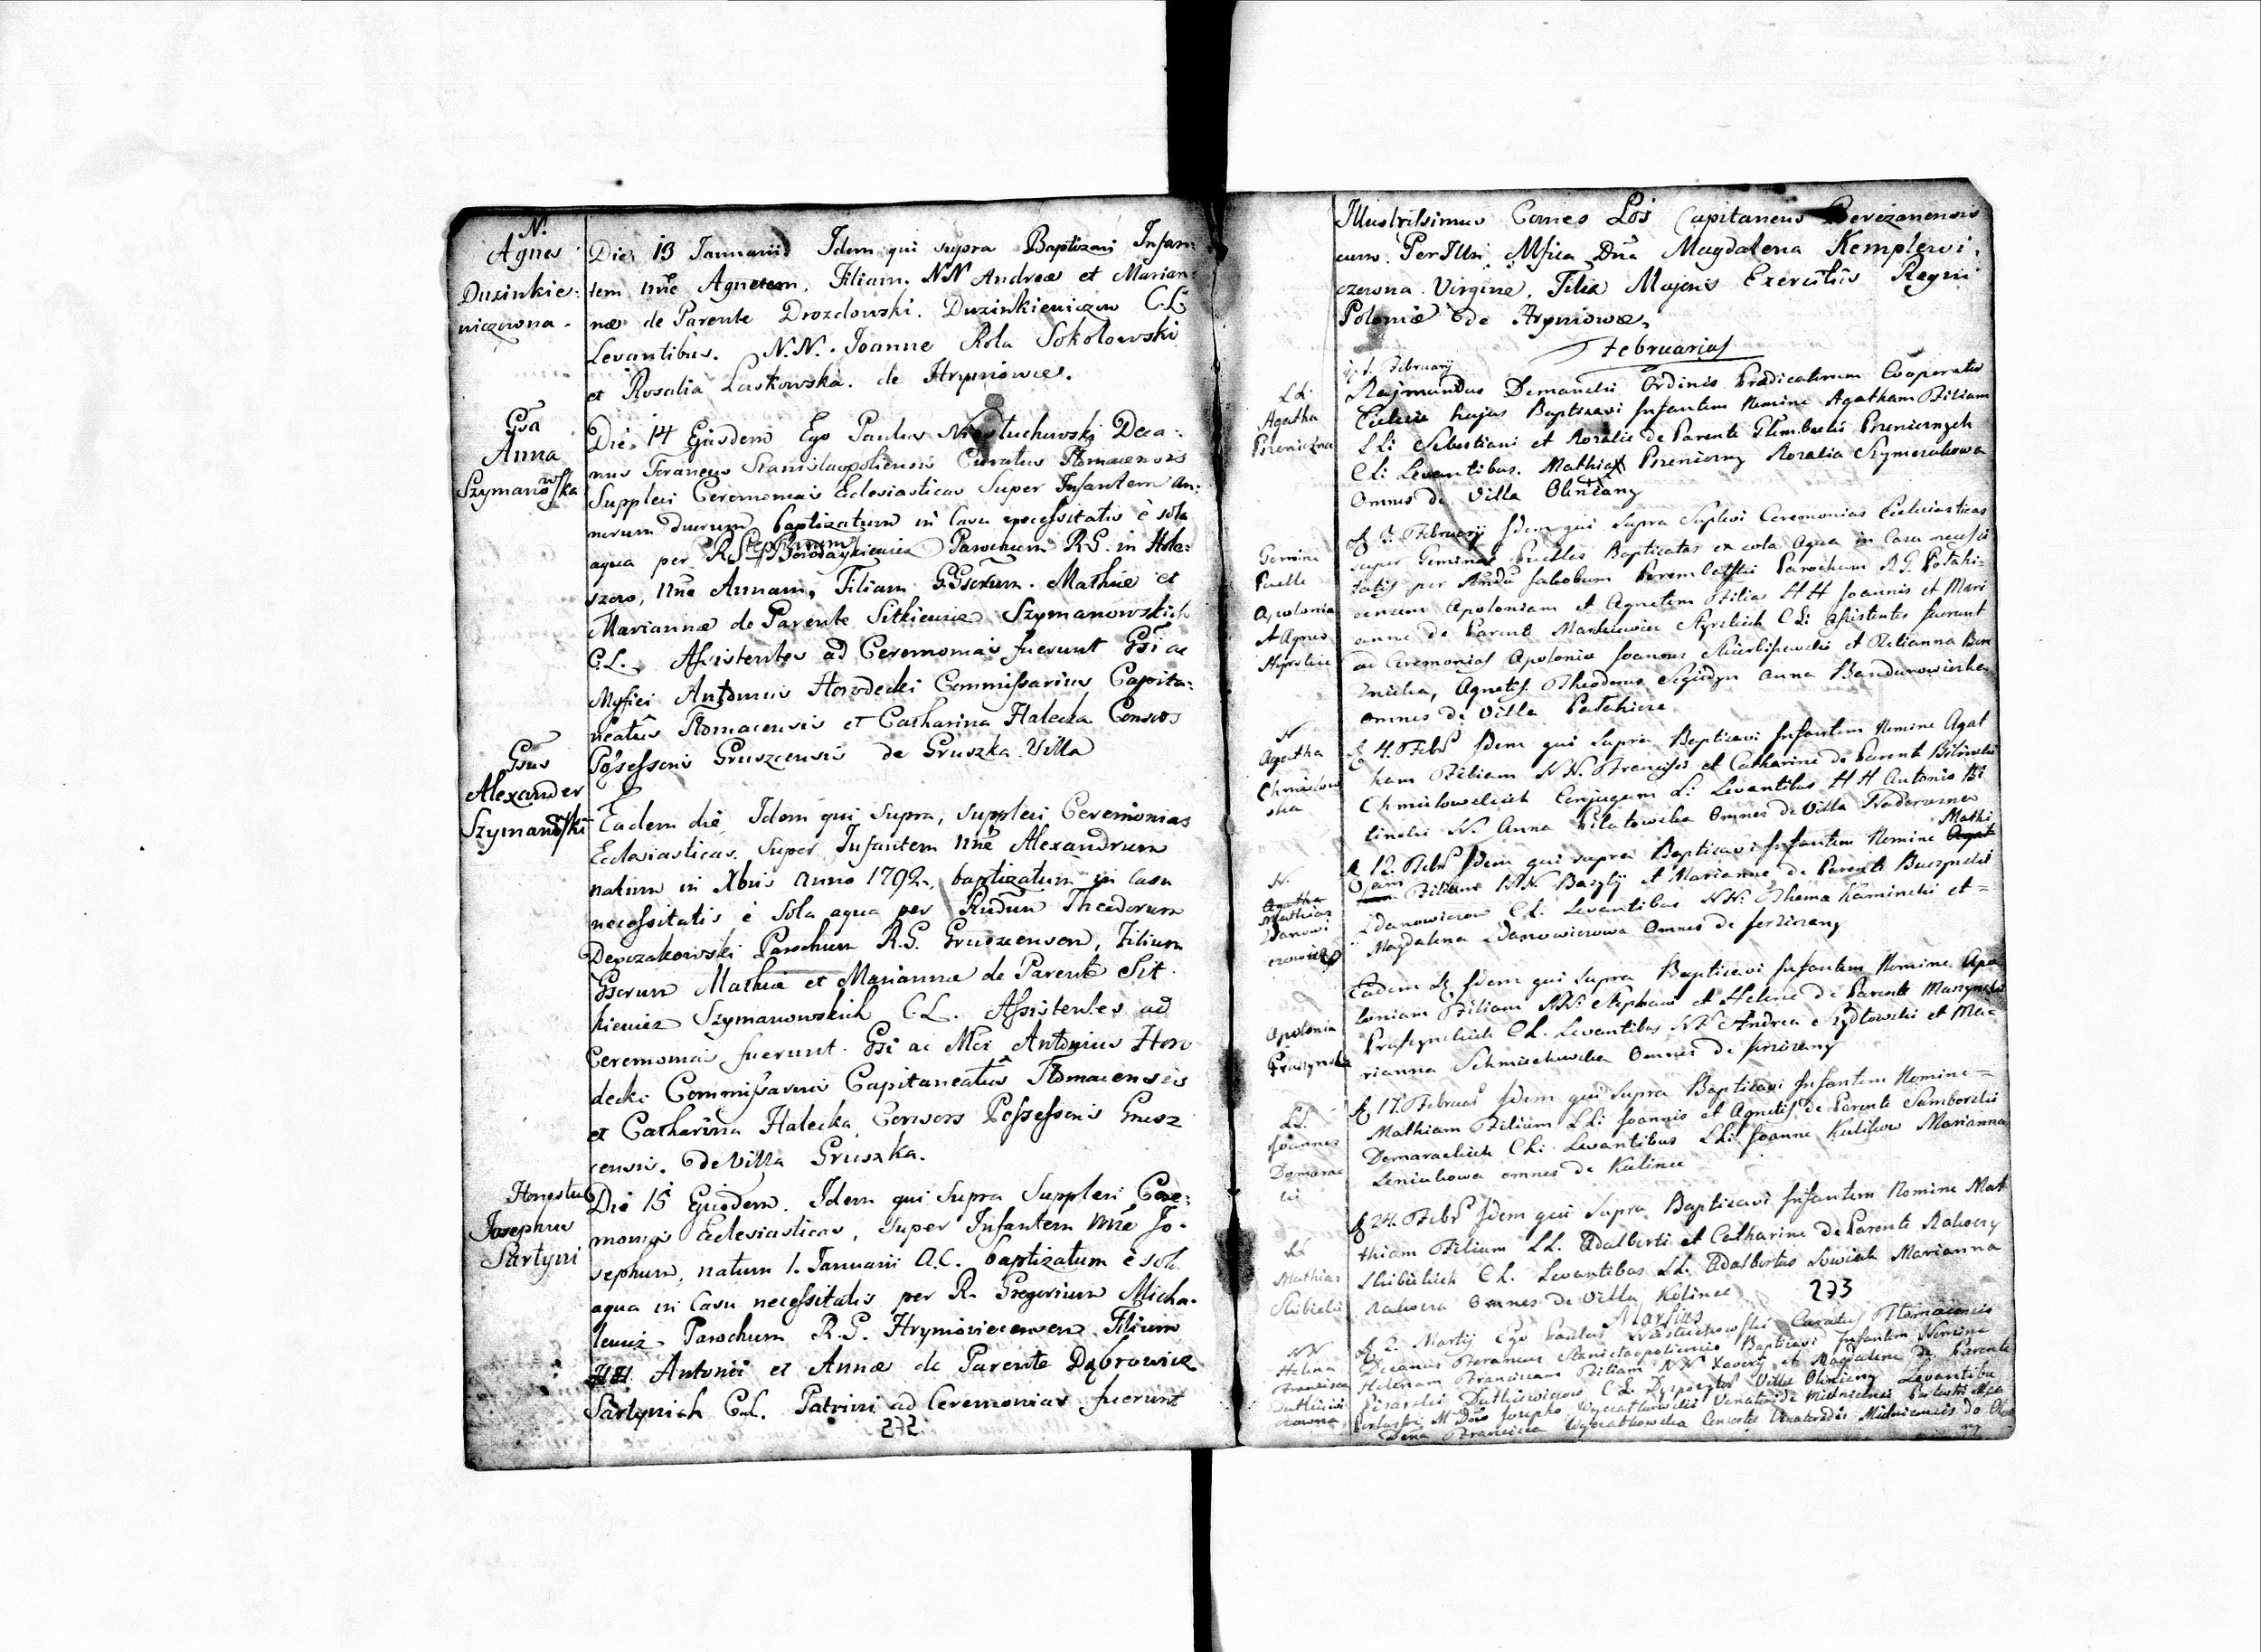 N.
Agnes
Duzinkie:
wiczowna.
Die 13 Januarii Idem qui supra Baptizavi Infan:
tem nñe Agnetem, Filiam NN Andreæ et Marian:
næ de Parente Drozdowski. Duzinkiewiczow C.L.
Levantibus. N.N. Joanne Rola Sokołowski
et Rosalia Laskowska. de Hryniowce.
Gsa
Anna
Szymanowska
Die 14 Ejusdem Ego Paulus Nastuchowski Deca:
nus Foraneus Stanislaopoliensis Curatus Tłomacensis
Supplevi Ceremonias Eclesiasticas Super Infantem an:
norum duorum baptizatum in Casu necessitatis è sola
aqua per R. Stephanum Parochum R.G. in Hole:
szow, nñe Annam, Filiam GGsorum. Mathiæ et
Mariannæ de Parente Sitkiewicz Szymanowskich
C.L. Assistentes ad Ceremonias fuerunt Gsi ac
Mgfici Antonius Horodecki Commissarius Capita:
neatûs Tłomacensis et Catharina Halecka Consors
Possessoris Gruszcensis de Gruszka Villa
Gsus
Alexander
Szymanowski
Eadem die Idem qui Supra, supplevi Ceremonias
Eclesiasticas. Super Infantem nñe Alexandrum
natum in Xbris anno 1792, baptizatum in Casu
necessitatis è Sola aqua per Rndum Theodorum
Derczakowski Parochum R.G. Gruszcensem, Filium
Gsorum Mathiæ et Mariannæ de Parente Sit
kiewicz Szymanowskich C.L. Assistentes ad
Ceremonias fuerunt. Gsi ac Mci Antonius Horo
decki Commissarius Capitaneatûs Tłomacensis
et Catharina Halecka Consors Possessoris Grusz
censis. de Villa Gruszka.
Honestus
Josephus
Sartyni
Die 15 Ejusdem. Idem qui Supra Supplevi Cere:
monias Eclesiasticas, super Infantem nñe Jo-
sephum, natum 1. Januarii A.C. baptizatum è sola
aqua in Casu necessitatis per R. Gregorium Micha-
lewicz Parochum R.G. Hryniowcensem Filium
HH Antonii et Annæ de Parente Dąbrowicz
Sartynich C.L. Patrini ad Ceremonias fuerunt
272.
Illustrissimus Comes Łoś Capitaneus Berezanensis
cum PerIllri Mfica Dña Magdalena Kemplewi,
czowna Virgine, Filia Majoris Exercitûs Regni
Poloniæ de Hryniowce,
Februarius
1. February
LL.
Agatha
Pszeniczna
Rajmundus Demanecki Ordinis Prædicatorum Cooperator
Eclesie hujus Baptizavi Infantem Nomine Agatham Filiam
LL: Sebestiani et Rozalie de Parente Pszenicznych
CL: Levantibus. Mathias Pszeniczny Rozalia Szymczukowa
Omnes de Villa Oleszany
Gemine
Puelle
Apolonia
et Agnes
D. 2. February Idem qui Supra Suplevi Ceremonias Eclesiasticas
super Geminas Puellas Baptizatas ex sola Aqua in Casu necessi
tatis per Rñdu Jakobum Parochum R.G. Palahi:
censem Apoloniam et Agnetem Filias HH Joannis et Mari
anne de Parente Markiewicz CL: Assistentes fuerunt
ad Ceremonias Apolonie Joannes et Marianna
Agnetis Theodorus Anna Bandurowiczka
omnes de Villa Palahicze
N
Agatha
Chmielow
ska
D. 4. Febr Idem qui Supra Baptizavi Infantem Nomine Agat
ham Filiam N.N. Francisci et Catharine de Parente Bilinski
Chmielowskich Conjugum L: Levantibus HH Antonio Bi
linski N. Anna Piłatowska Omnes de Villa Nadorozna
N.
Agatha
Mathias
Zdanowi
czowicz
D. 12. Febr Idem qui supra Baptizavi Infantem Nomine Agat Mathi
am Filium N.N. Bazylij et Marianne de Parente Buczynski
Zdanowiczow CL. Levantibus NN. Thoma Kaminski et =
Magdalena Zdanowiczowa Omnes de Jezierzany
Apolonia
Pruszynska
Eadem D. Idem qui Supra Baptizavi Infantem Nomine Apo
loniam Filiam NN: Stephani et Helene de Parente Muszynski
Pruszynskich CL. Levantibus NN Andrea Szydłowski et Ma=
rianna Omnes de Jezierzany
LL.
Joannes
Domarac
ki
D. 17. Februar Idem qui Supra Baptizavi Infantem Nomine =
Mathiam Filium LL: Joannis et Agnetis de Parente Samborski
Domarackich CL: Levantibus LL: Joanne Kulikow Marianna
omnes de Kolince
LL
Mathias
Skibicki
D. 24. Febr Idem qui Supra Baptizavi Infantem Nomine Mat
thiam Filium LL. Adalberti et Catharine de Parente Rakoczy
Skibickich CL. Levantibus LL. Adalbertus Sowiak Marianna
Rakocza Omnes de Villa Kolince
273
Martius
NN
Helena
Francisca
D. 2. Martij Ego Paulus Nastuchowski Curatus Tłomacensis
Decanus Foraneus Stanislaopoliensis Baptizavi Infantem Nomine
Helenam Franciscam Filiam NN Xawery et Magdalene de Parente